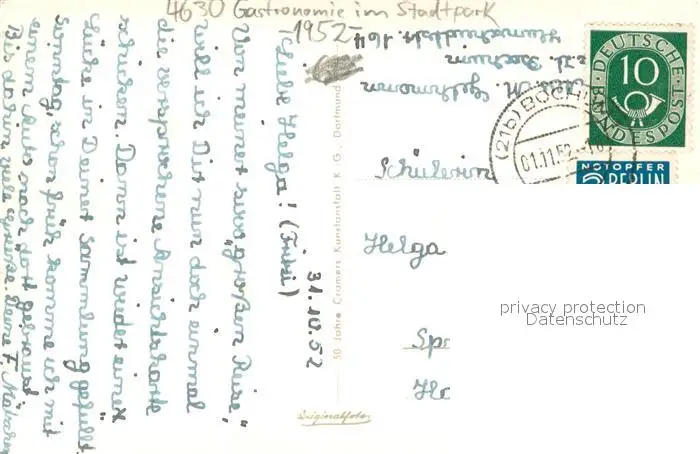 4630 Gastronomie im Stadtpark
-1952-
31.10.52
Liebe Helga! (Fritzi)
Von meiner swo „großen Reise“
will ich Dir nun doch einmal
die versprochene Ansichtskarte
schicken. Dann ist wieder einer
Lücke in Deiner Sammlung gefüllt.
Sonntag, schon früh komme ich mit
einem Auto nach dort gebraust
Bis dahin viele Grüße Deine F.
50 Jahre Cramers Kunstanstalt K.G., Dortmund
Originalfoto
Bochum
DEUTSCHE BUNDESPOST
10
(21b) BOCHUM
01.11.52
NOTOPFER
2 BERLIN
Schülerin
Helga
privacy protection
Datenschutz